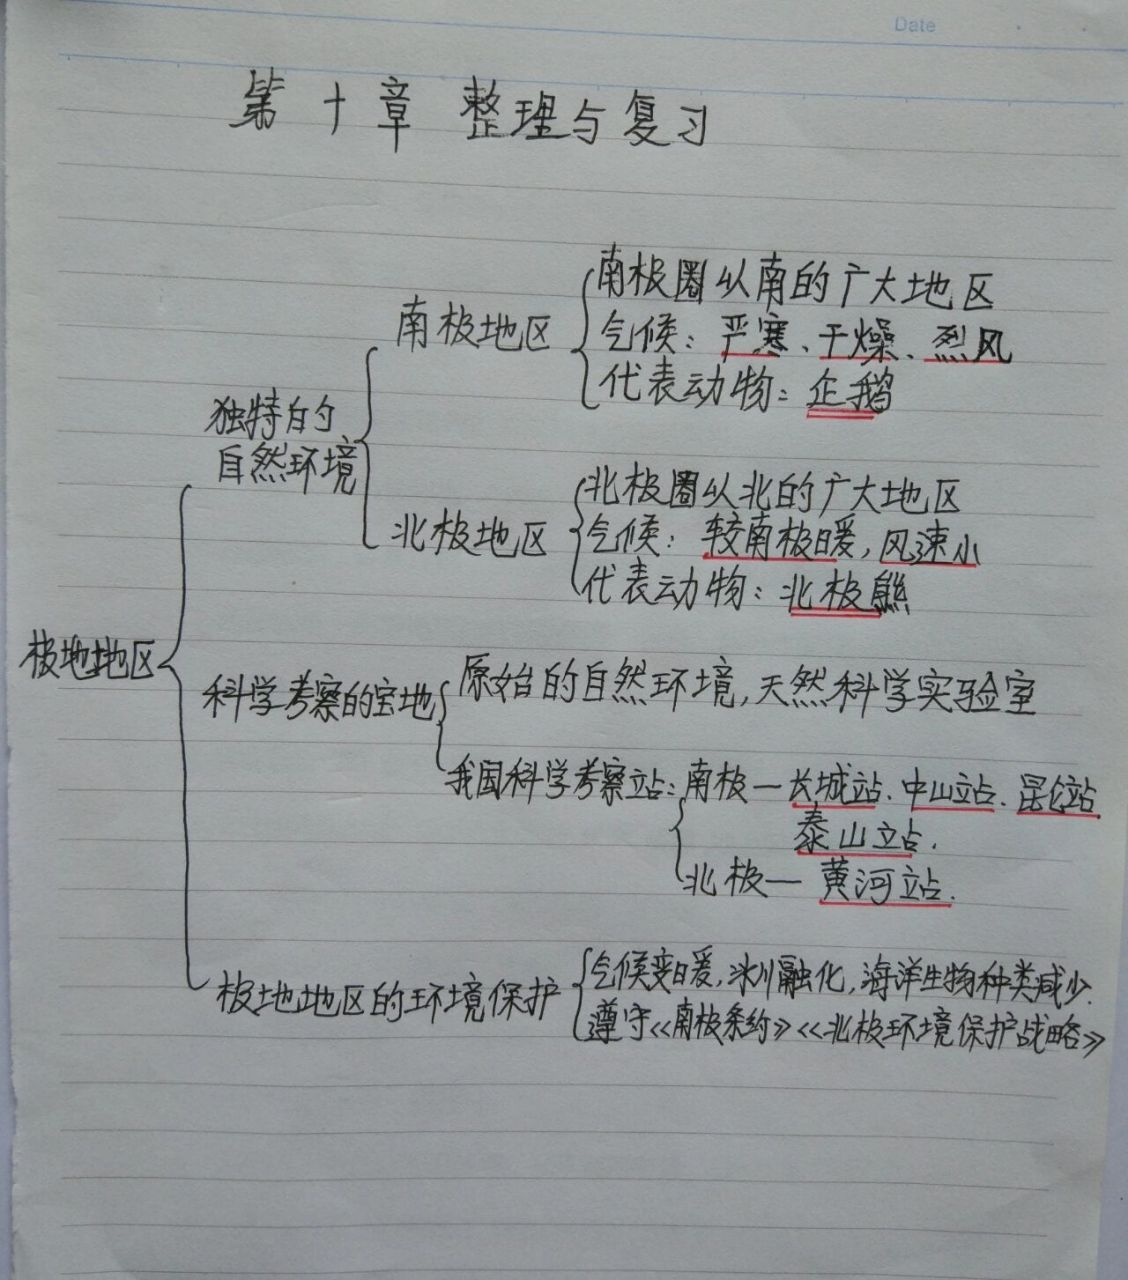 Date
第十章 整理与复习
南极圈以南的广大地区
南极地区
气候：严寒、干燥、烈风
代表动物：企鹅
独特的
自然环境
北极圈以北的广大地区
北极地区
气候：较南极暖，风速小
代表动物：北极熊
极地地区
科学考察的宝地
原始的自然环境，天然科学实验室
我国科学考察站：南极—长城站、中山站、昆仑站
泰山站.
北极—黄河站.
极地地区的环境保护
气候变暖，冰川融化，海洋生物种类减少.
遵守《南极条约》《北极环境保护战略》